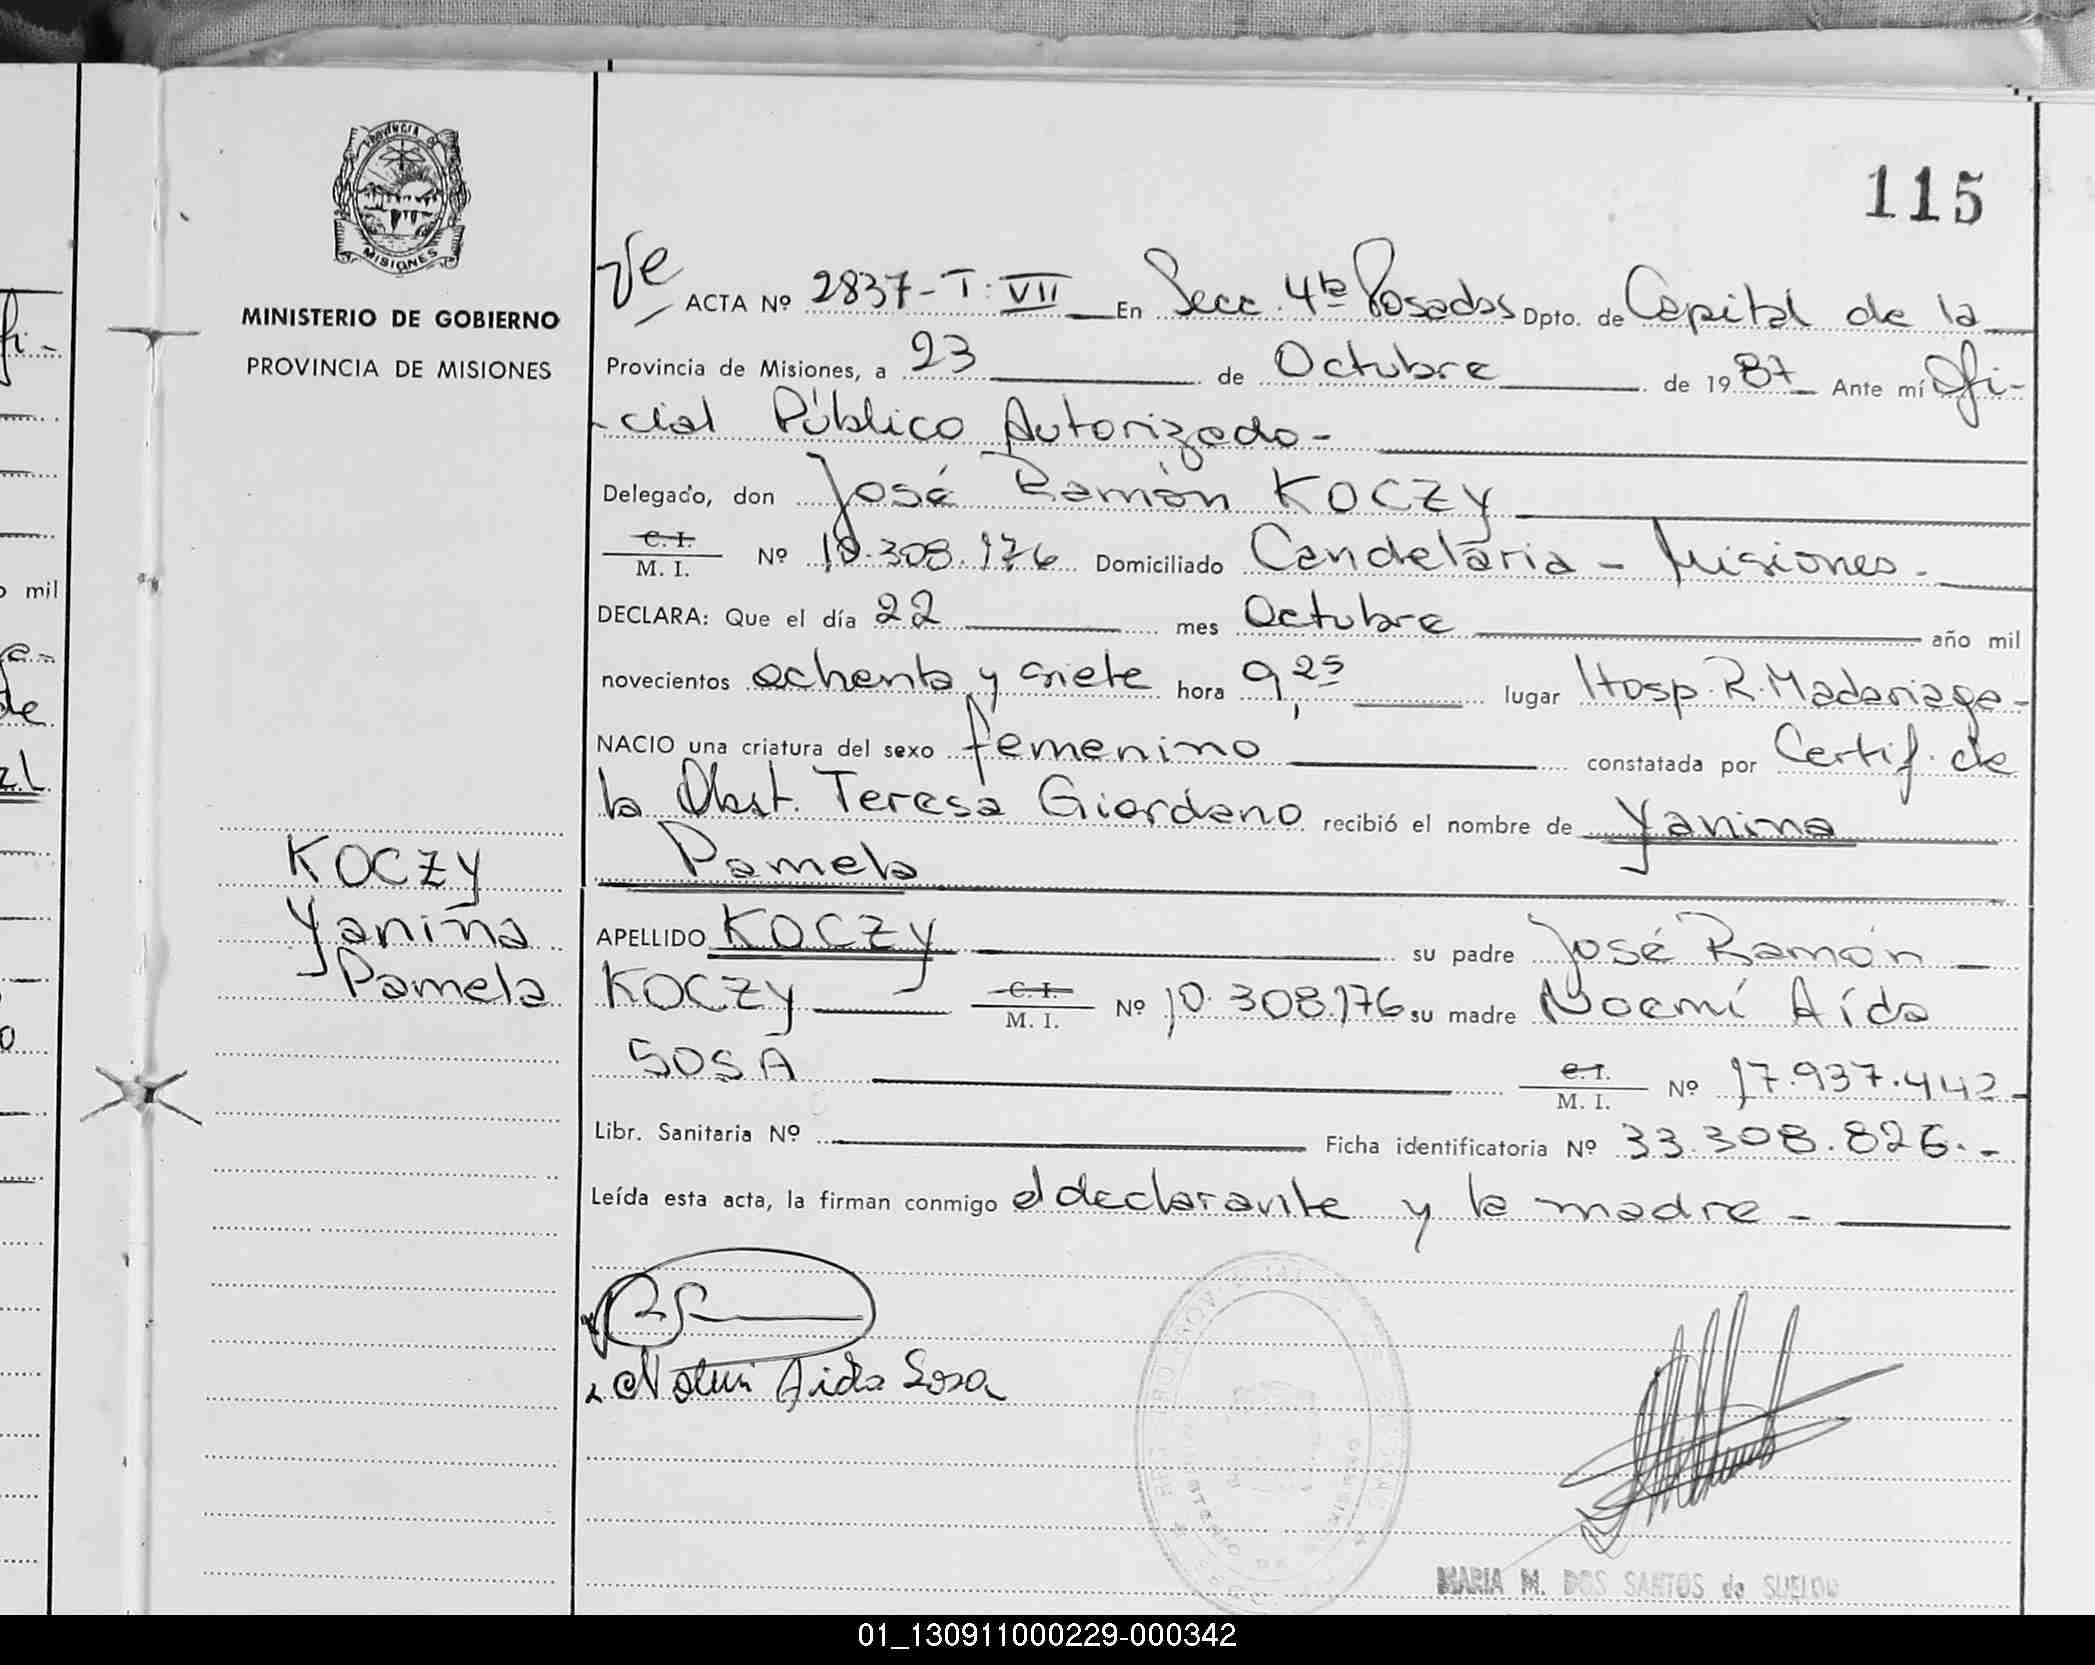 115
PROVINCIA D
MISIONES
MINISTERIO DE GOBIERNO
PROVINCIA DE MISIONES
ACTA Nº 2837-T:VII En Secc. 4ta Posadas Dpto. de Capital de la
Provincia de Misiones, a 23 de Octubre de 1987 Ante mí Ofi-
-cial Público Autorizado-
Delegado, don José Ramón KOCZY
C. I.
M. I. Nº 10.308.176 Domiciliado Candelaria - Misiones.
DECLARA: Que el día 22 mes Octubre año mil
novecientos ochenta y siete hora 9,25 lugar Hosp. R. Madariaga-
NACIO una criatura del sexo femenino constatada por Certif. de
la Obst. Teresa Giordano recibió el nombre de Yanina
Pamela
KOCZY
Yanina
Pamela
APELLIDO KOCZY su padre José Ramón
KOCZY C. I.
M. I. Nº 10.308.176 su madre Noemí Aída
SOSA C. I.
M. I. Nº 17.937.442
Libr. Sanitaria Nº Ficha identificatoria Nº 33.308.826.-
Leída esta acta, la firman conmigo el declarante y la madre -
Noemi Aida Sosa
MARIA M. DOS SANTOS de SUELDO
mil
01_130911000229-000342